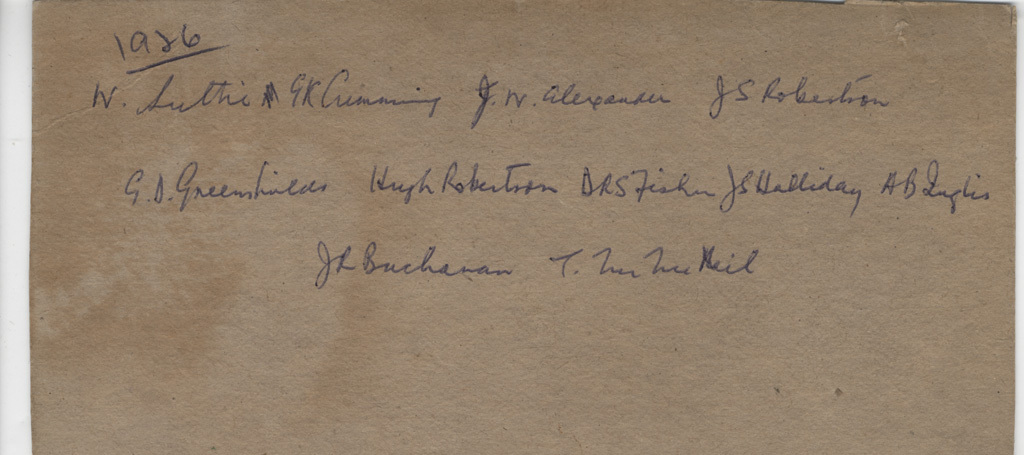 1926
W. Suttie GK Cumming J. W. Alexander J S Robertson
G. D. Greenshields Hugh Robertson D R S Fisher J S Halliday A B Inglis
J L Buchanan T. Neil